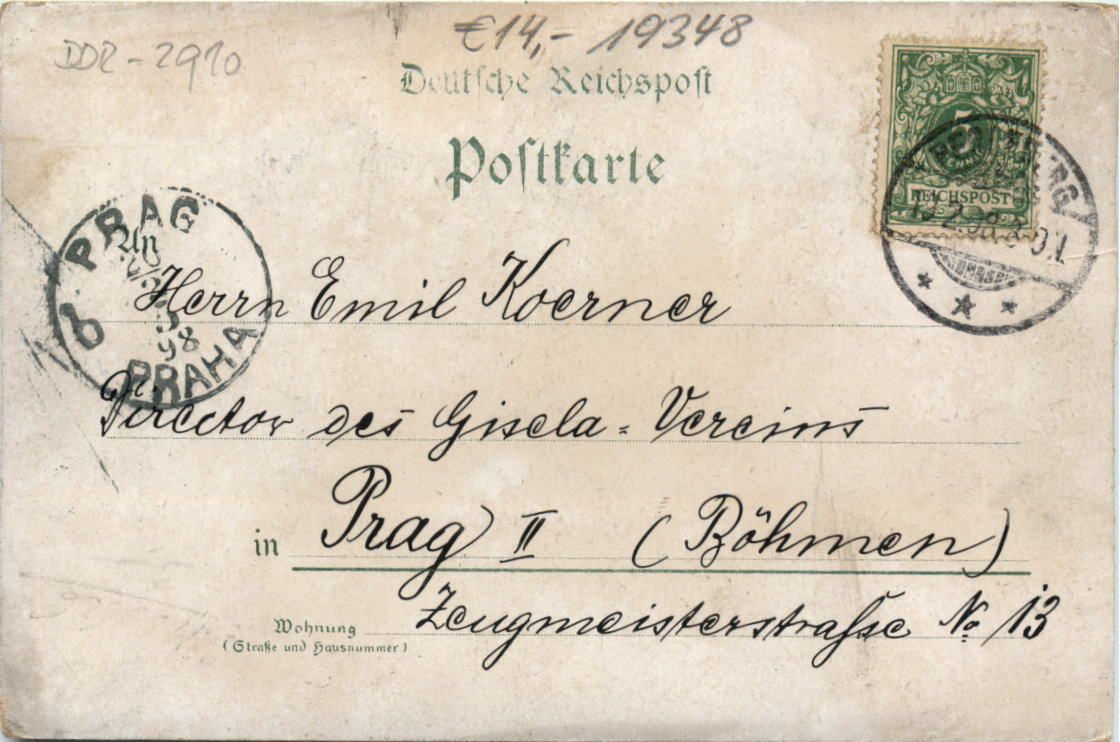 DDR - 2910
€14,- 19348
Deutsche Reichspost
Postkarte
5
REICHSPOST
PRAG
98
PRAHA
An
Herrn Emil Koerner
Director des Gisela-Vereins
in Prag II (Böhmen)
Wohnung
(Straße und Hausnummer)
Zeugmeisterstraße No 13